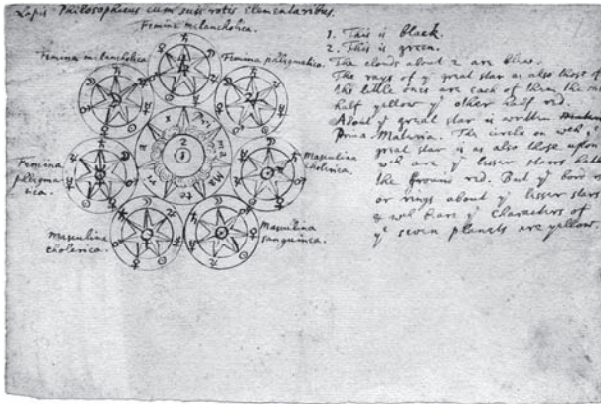 Lapis Philosophicus cum suis rotis elementaribus.
Femina melancholica.
Femina melancholica.
Femina phlegmatica.
Femina
phlegmatica.
Masculina
cholerica.
Masculina
cholerica.
Masculina
sanguinea.
Pri
ma
Ma
te
ri
2
1
1. This is black.
2. This is green.
The clouds about 2 are blew.
The rays of yᵉ great star as also those of
the little ones are each of them the one
half yellow yᵉ other half red.
About yᵉ great star is written
Prima Materia. The circle on wᶜʰ yᵉ
great star is as also those upon
wᶜʰ are yᵉ lesser starrs hath
the ground red. But yᵉ
or rings about yᵉ lesser stars
wᶜʰ are yᵉ characters of
yᵉ seven planets are yellow